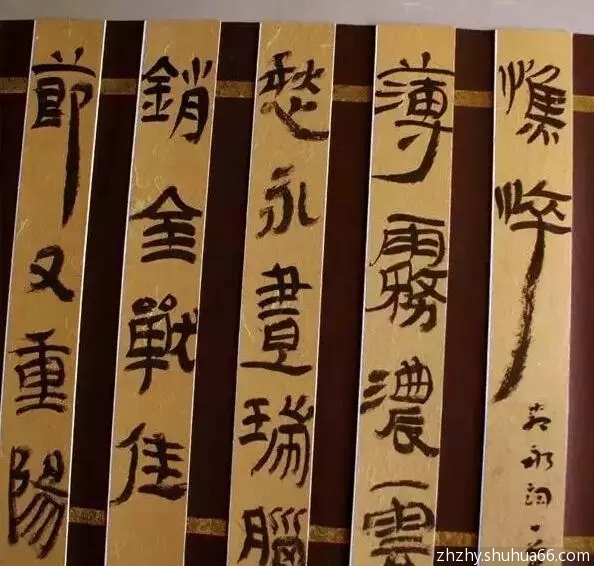 憔悴
薄霧濃雲
愁永晝瑞腦
銷金獸佳
節又重陽
zhzhy.shuhua66.com